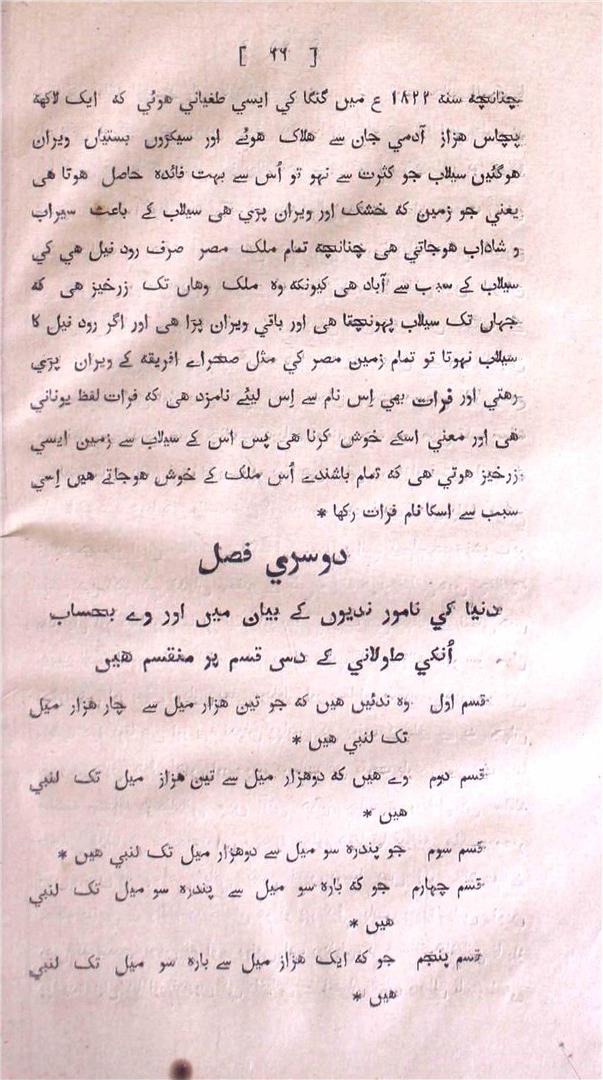 [ ٩٩ ]
چنانچه سنه ١٨٢٢ ع میں گنگا کي ایسي طغیاني هوئي که ایک لاکهه
پچاس هزار آدمي جان سے هلاک هوئے اور سیکڑوں بستیاں ویران
هوگئیں سیلاب جو کثرت سے نهو تو اُس سے بهت فائده حاصل هوتا هی
یعني جو زمین که خشک اور ویران پڑي هی سیلاب کے باعث سیراب
و شاداب هوجاتي هی چنانچه تمام ملک مصر صرف رود نیل هي کي
سیلاب کے سبب سے آباد هی کیونکه وه ملک وهاں تک زرخیز هی که
جهاں تک سیلاب پهونچتا هی اور باقي ویران پڑا هی اور اگر رود نیل کا
سیلاب نهوتا تو تمام زمین مصر کي مثل صحراے افریقه کے ویران پڑي
رهتي اور فرات بهي اِس نام سے اِس لیئے نامزد هی که فرات لفظ یوناني
هی اور معني اسکے خوش کرنا هی پس اس کے سیلاب سے زمین ایسي
زرخیز هوتي هی که تمام باشندے اُس ملک کے خوش هوجاتے هیں اِسي
سبب سے اسکا نام فرات رکها *
دوسري فصل
دنیا کي نامور ندیوں کے بیان میں اور وے بحساب
اُنکي طولاني کے دس قسم پر منقسم هیں
قسم اول وه ندئیں هیں که جو تین هزار میل سے چار هزار میل
تک لنبي هیں *
قسم دوم وے هیں که دوهزار میل سے تین هزار میل تک لنبي
هیں *
قسم سوم جو پندره سو میل سے دوهزار میل تک لنبي هیں *
قسم چهارم جو که باره سو میل سے پندره سو میل تک لنبي
هیں *
قسم پنجم جو که ایک هزار میل سے باره سو میل تک لنبي
هیں *